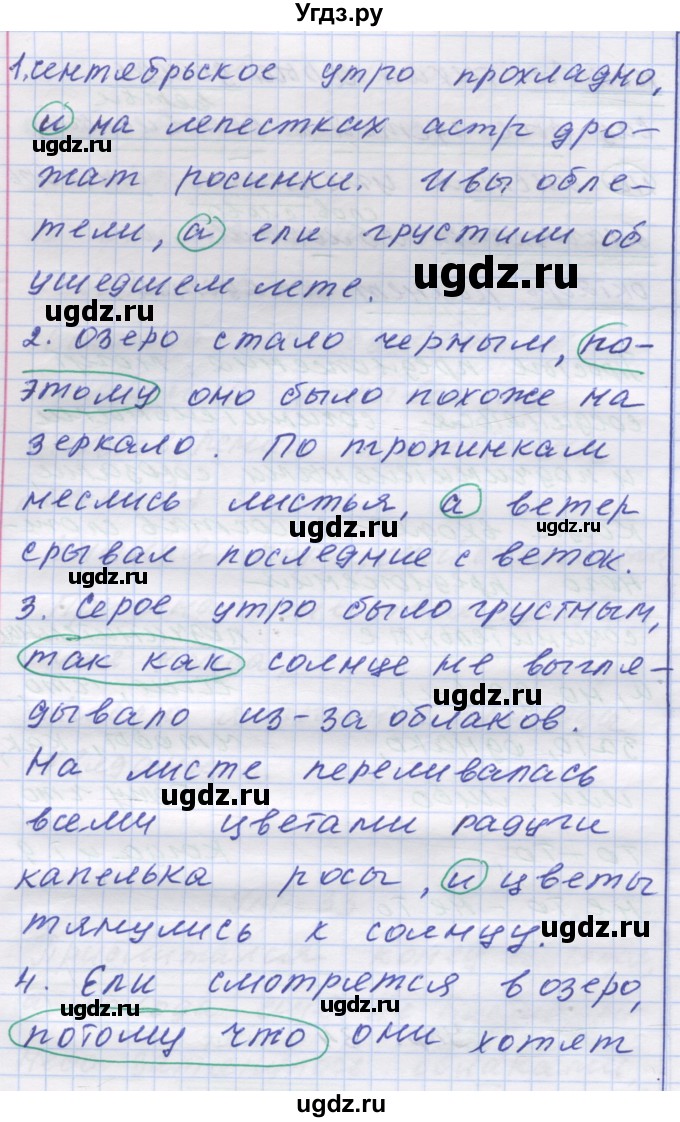 Угдз.ру
1. сентябрьское утро прохладно,
и на лепестках астр дро-
ugdz.ru
жат росинки. Ивы обле-
тели, а ели грустили об
ugdz.ru
ушедшем лете.
ugdz.ru
2. Озеро стало черным, по-
этому оно было похоже на
зеркало. По тропинкам
неслись листья, а ветер
ugdz.ru ugdz.ru
срывал последние с веток.
ugdz.ru
3. Серое утро было грустным,
так как солнце не выгля-
ugdz.ru
дывало из-за облаков.
На листе переливалась
ugdz.ru
всеми цветами радуги
капелька росы, и цветы
тянулись к солнцу.
ugdz.ru
4. Ели смотрятся в озеро,
ugdz.ru
потому что они хотят
ugdz.ru